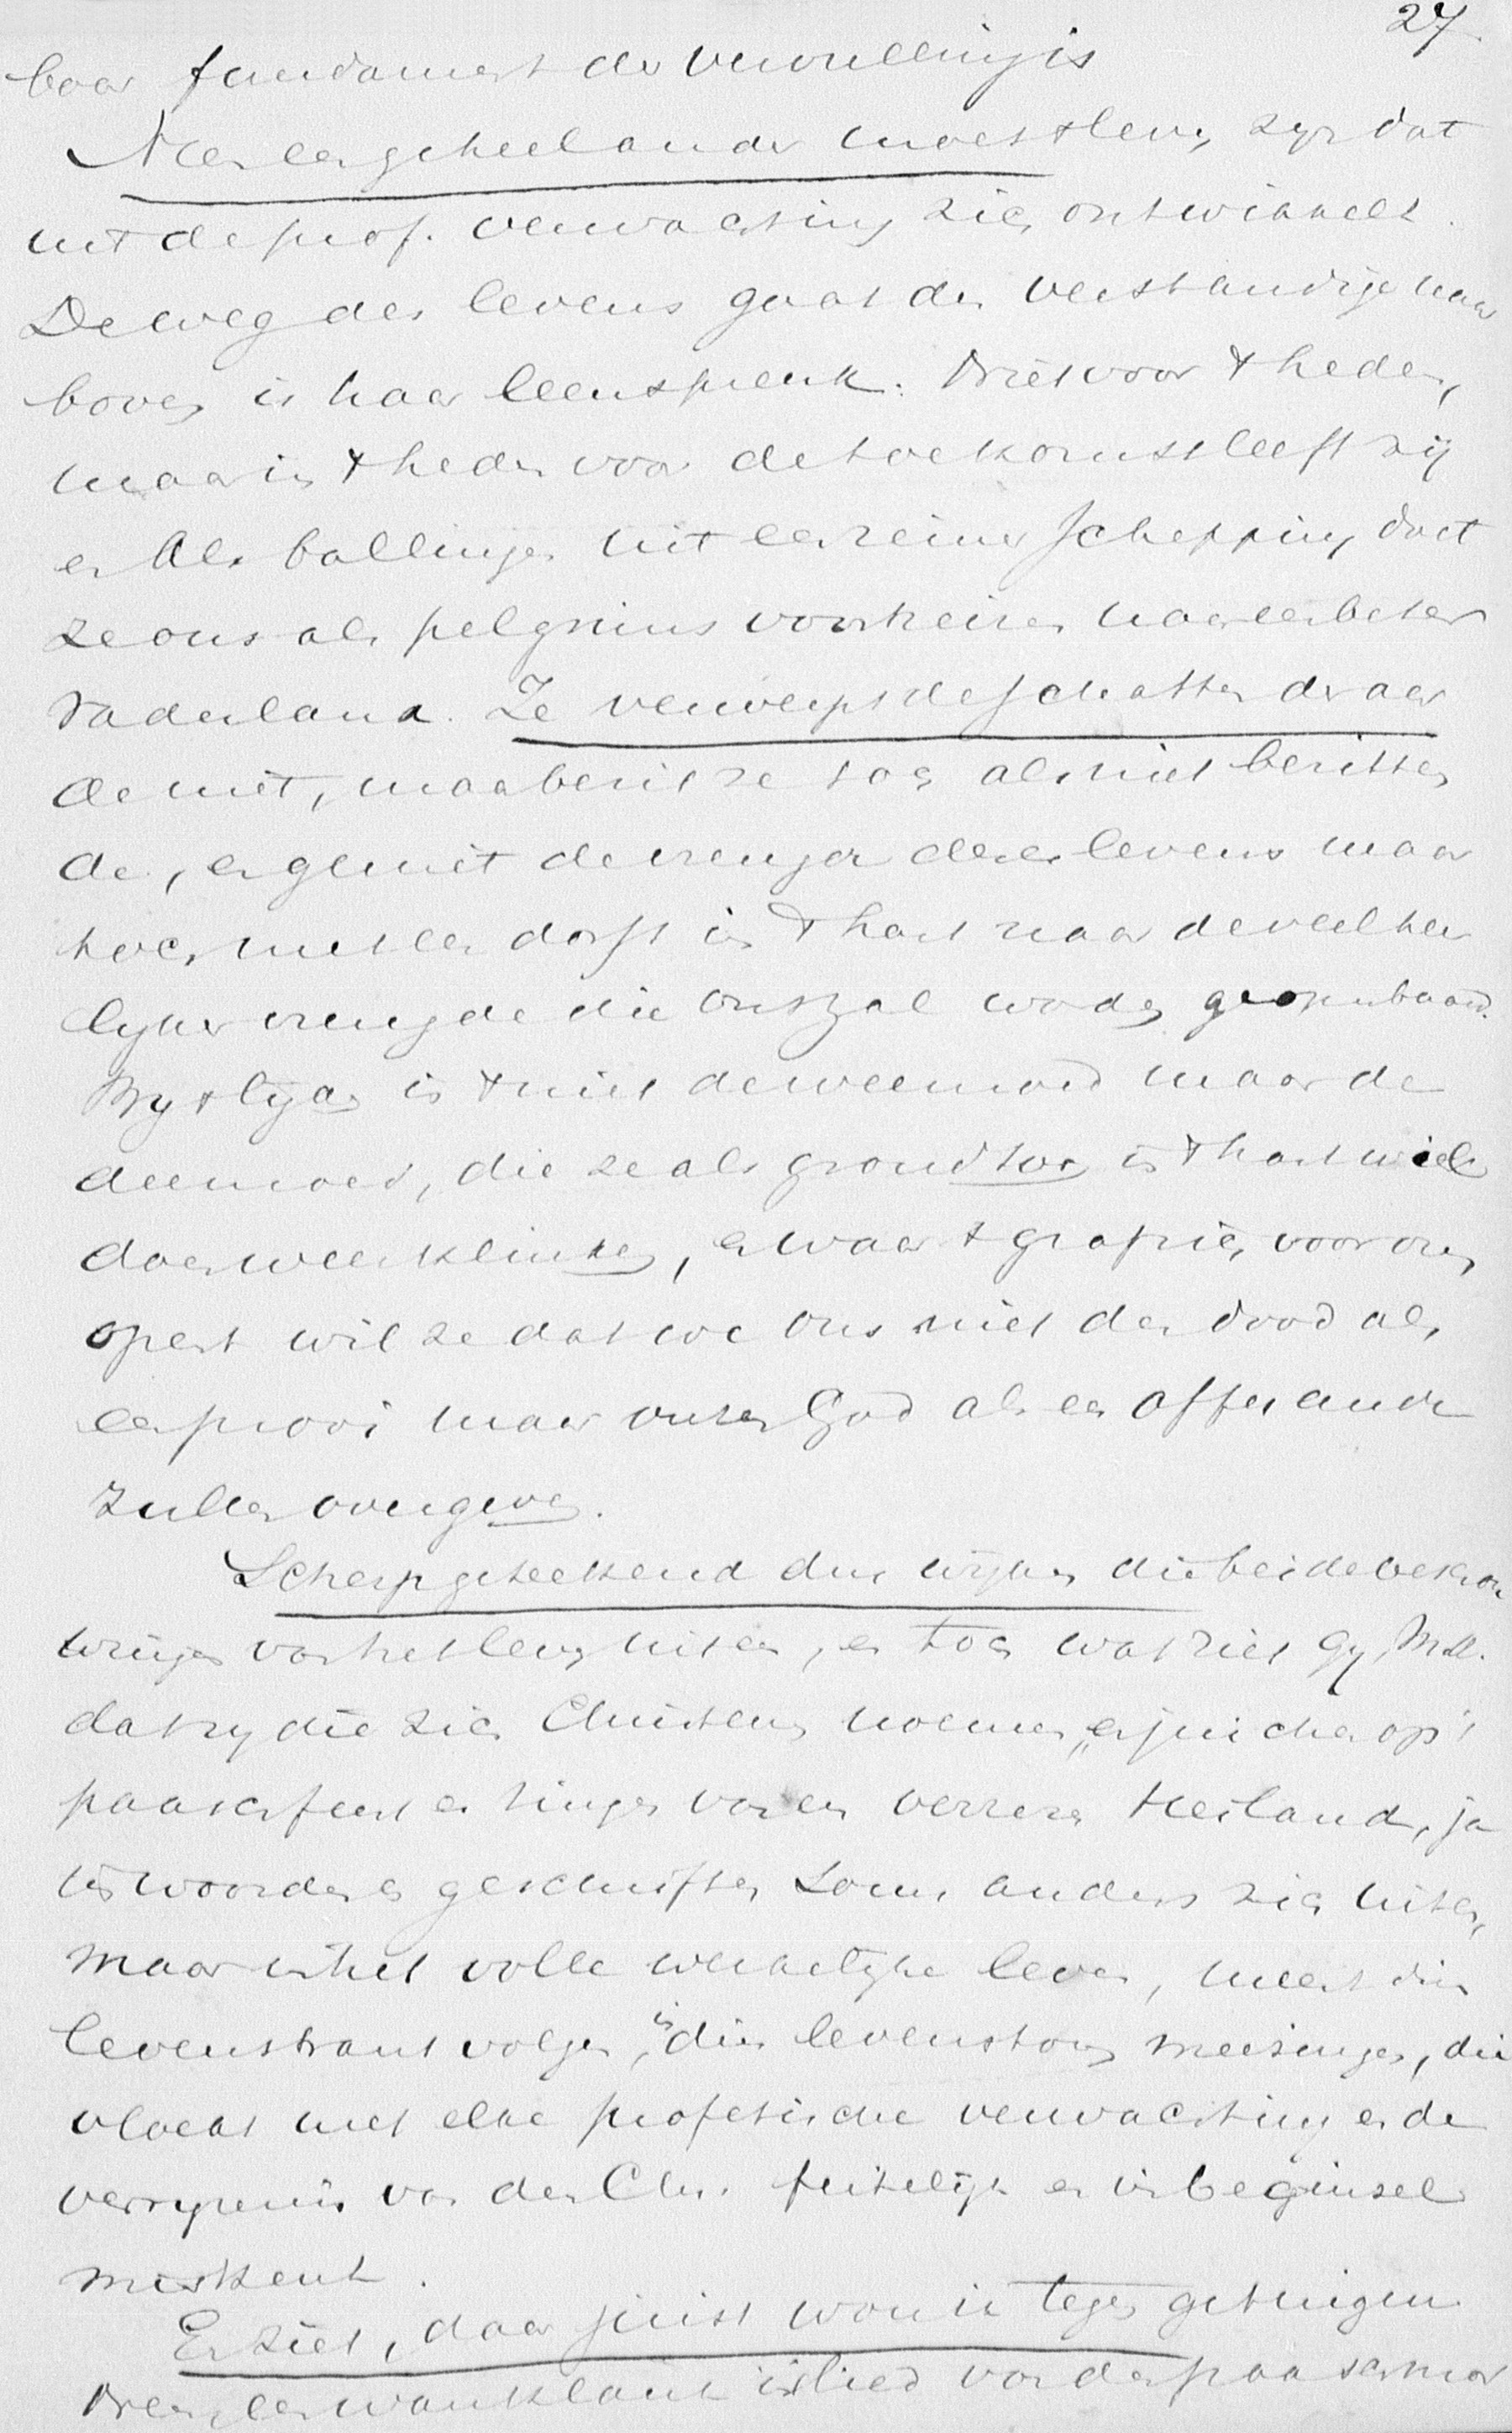 27
baar fundament der vervulling is
Neen een geheel ander moest t leven zyn dat
uit de prof. verwachting zich ontwikkelt.
De weg des levens gaat den verstandige naar
boven is haar leenspreuk. Niet voor t heden,
maar in t heden voor de toekomst leeft zij
en Als ballingen uit een reiner schepping doet
ze ons als pelgrims voortreizen naar een beter
Vaderland. Ze verwerpt de schatten der aar
de niet, maar bezit ze toch als niet bezitten
de, en geniet de vreugden dezes levens maar
toch met een dorst in t hart naar de veel heer
lyker vreugde die ons zal worden geopenbaard.
By t lyden is t niet de weemoed maar de
deemoed, die ze als grondtoon in t hart wil
doen weerklinken, en waar t graf zich voor ons
opent wil ze dat we ons niet den dood als
een prooi maar onzen God als een offerande
zullen overgeven.
Scherp geteekend dus wyken die beide beschou
wingen van het leven uiteen, en toch wat ziet Gy, M.H.
dat zy die zich Christenen noemen, en juichen op 't
paaschfeest en zingen van een verrezen Heiland, ja
in woorden en geschriften soms anders zich uiten,
maar in het volle werkelyke leven, meest dien
levenstrant volgen, in dien levenstoon meezingen, die
vloekt met elke profetische verwachting en de
verryzenis van den Chr. feitelijk en in beginsel
miskent.
En ziet, daar juist wou ik tegen getuigen
Neen, een wanklank in 't lied van den paaschmor